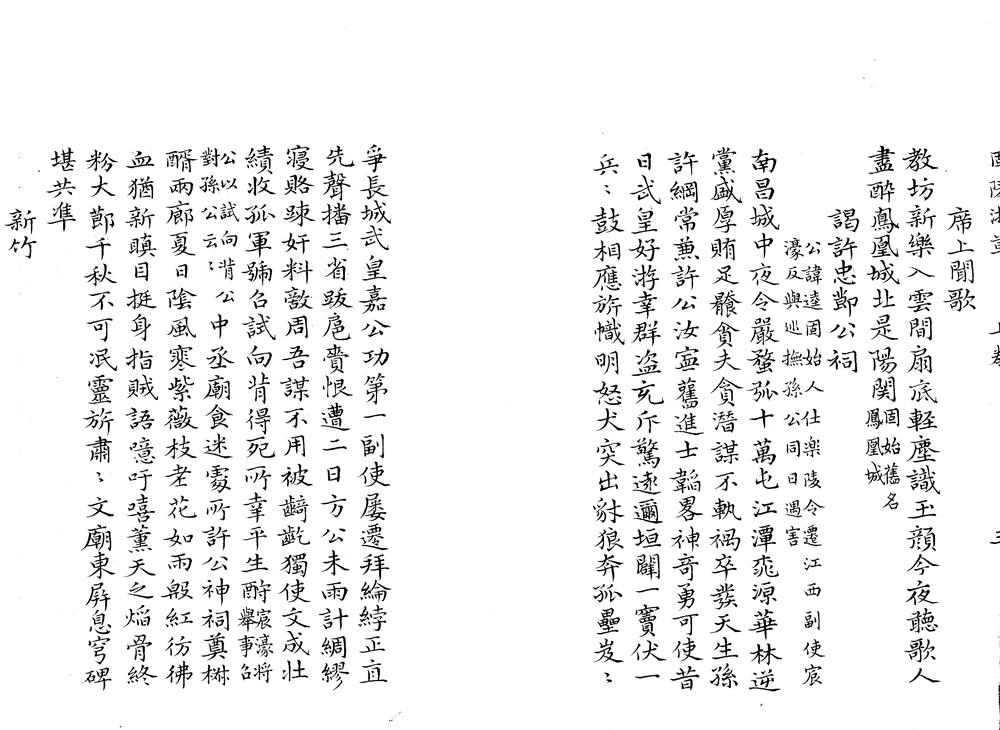 席上聞歌
教坊新樂入雲間扇底輕塵識玉顔今夜聽歌人
盡醉鳳凰城北是陽関固始舊名鳳凰城
謁許忠節公祠
公諱逵固始人仕樂陵令遷江西副使宸
濠反與巡撫孫公同日遇害
南昌城中夜令嚴蝥弧十萬屯江潭桃源華林逆
黨盛厚賄足饜貪夫貪潛謀不軌禍卒發天生孫
許綱常兼許公汝寧舊進士韜畧神奇勇可使昔
日武皇好游幸群盜充斥驚遠邇垣闢一竇伏一
兵〻鼓相應旂幟明怒犬突出豺狼奔孤壘岌〻
爭長城武皇嘉公功第一副使屡遷拜綸綍正直
先聲播三省跋扈賫恨遭二日方公未雨計綢繆
寢賂踈奸料敵周吾謀不用被齮齕獨使文成壯
績收孤軍號召試向背得死所幸平生酧宸濠將舉事召
公以試向背公
對孫公云〻中丞廟食迷處所許公神祠奠椒
醑兩廊夏日陰風寒紫薇枝老花如雨殷紅彷彿
血猶新瞋目挺身指賊語噫吁嘻薫天之焰骨終
粉大節千秋不可泯靈旂肅〻文廟東屛息穹碑
堪共準
新竹